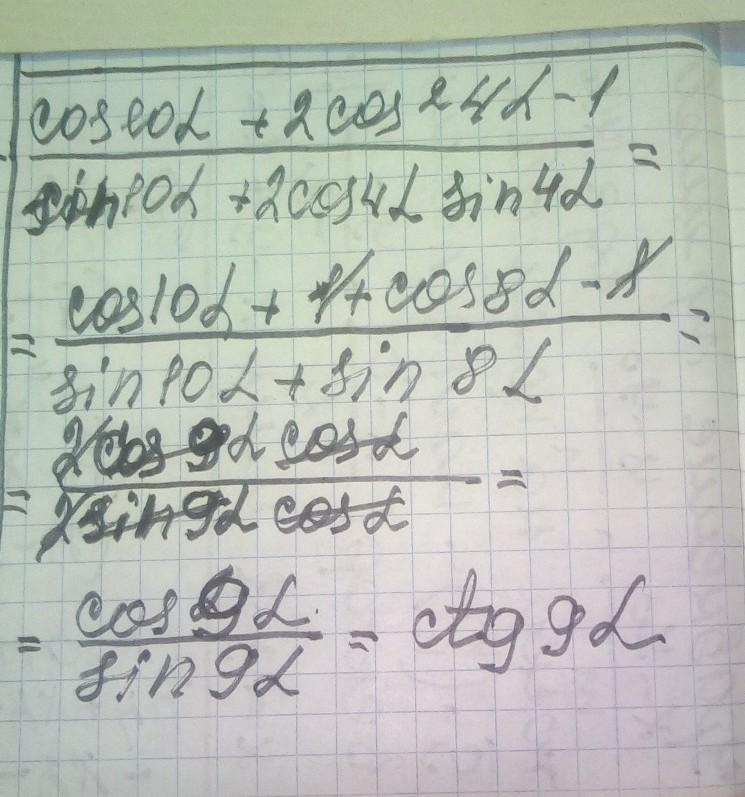 cos10α + 2cos²4α - 1
sin10α + 2cos4α sin4α =
= cos10α + 1 + cos8α - 1 =
sin10α + sin 8α
= 2cos 9α cosα =
2sin9α cosα
= cos 9α = ctg 9α
sin 9α